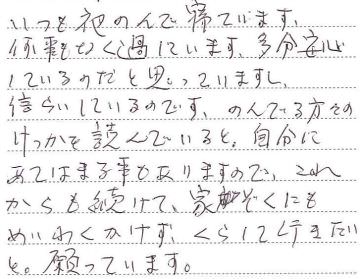 いつも祀のんで寝ています、
何事もなく過しています、多分安心
しているのだと思っていますし、
信らいしているのです、のんでる方々の
けっかを読んでいると、自分に
あてはまる事もありますので、これ
からも続けて、家ぞくにも
めいわくかけず、くらして行きたい
と。願っています。